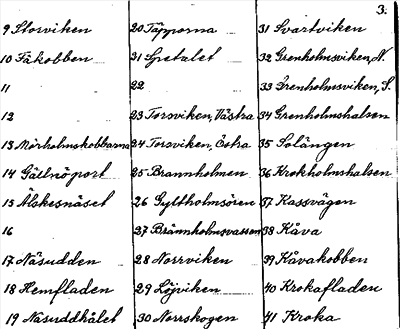 3.
9 Storviken
10 Fåkobben
11
12
13 Mörholmskobbarna
14 Gällnöport
15 Älskesnäset
16
17 Näsudden
18 Hemfladen
19 Näsuddhålet
20 Täpporna
31 Gretalet
22
23 Torsviken, Västra
24 Torsviken, Östra
25 Brannholmen
26 Gyltholmsören
27 Brännholmsvassen
28 Norrviken
29 Löjviken
30 Norrskogen
31 Svartviken
32 Grenholmsviken, N.
33 Grenholmsviken, S.
34 Grenholmshalsen
35 Solängen
36 Krokholmshalsen
37 Kassvägen
38 Kåva
39 Kåvakobben
40 Krokafladen
41 Kroka